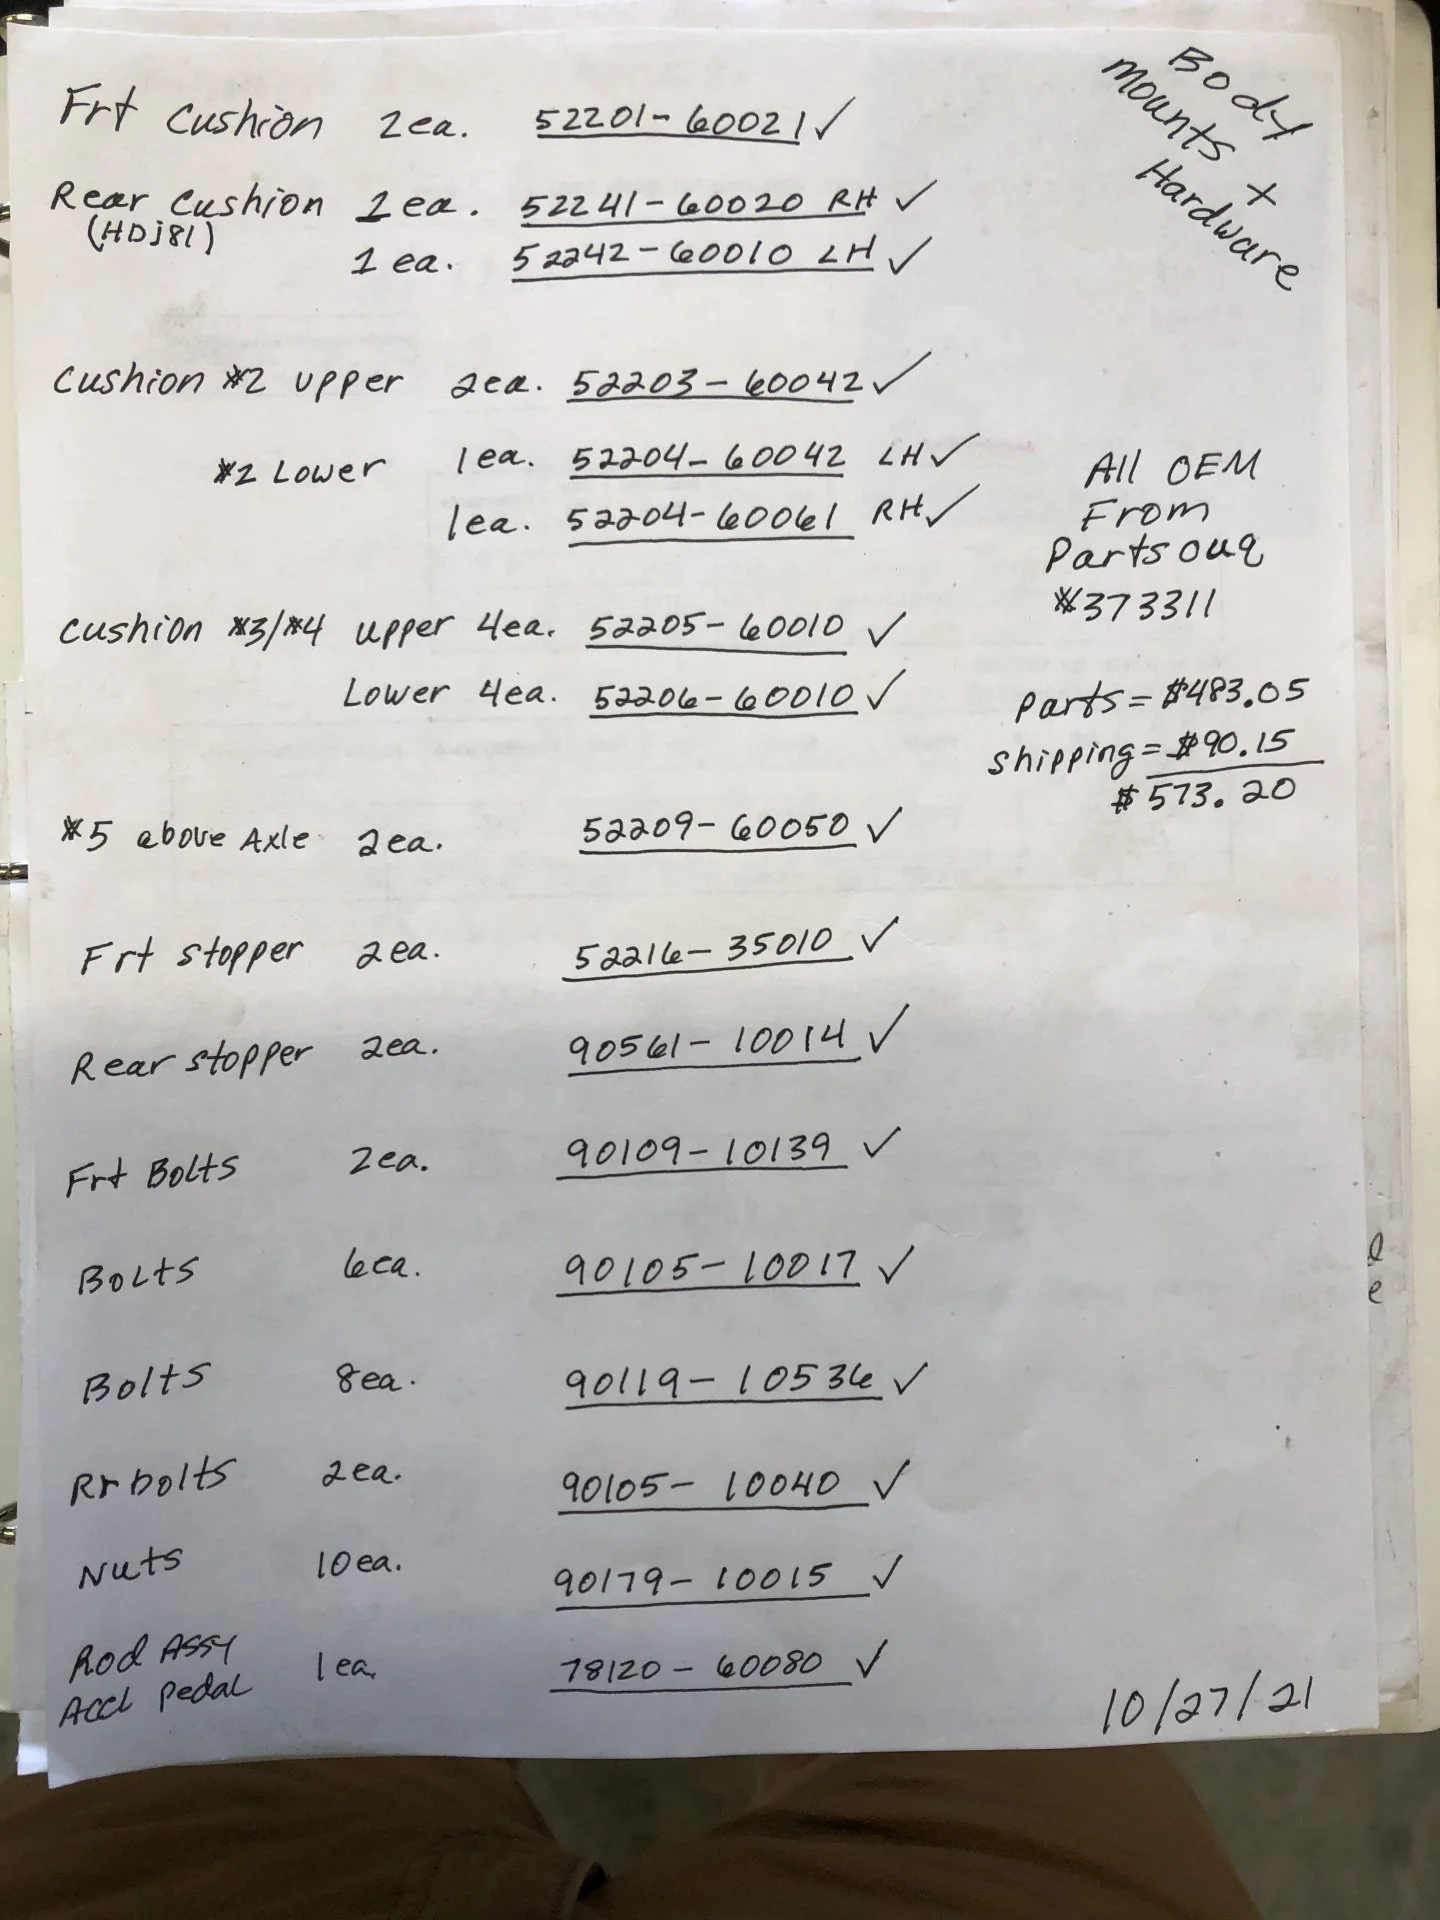 Body
mounts +
Hardware
Frt Cushion 2ea. 52201-60021 ✓
Rear Cushion 1ea. 52241-60020 RH ✓
(HDJ81)
1 ea. 52242-60010 LH ✓
Cushion #2 upper 2ea. 52203-60042 ✓
#2 Lower 1ea. 52204-60042 LH ✓
1ea. 52204-60061 RH ✓
All OEM
From
Partsouq
#373311
Cushion #3/#4 upper 4ea. 52205-60010 ✓
Lower 4ea. 52206-60010 ✓
Parts = $483.05
Shipping = $90.15
$573.20
#5 above Axle 2ea. 52209-60050 ✓
Frt stopper 2ea. 52216-35010 ✓
Rear stopper 2ea. 90561-10014 ✓
Frt Bolts 2ea. 90109-10139 ✓
Bolts 6ea. 90105-10017 ✓
Bolts 8ea. 90119-10536 ✓
Rr bolts 2ea. 90105-10040 ✓
Nuts 10ea. 90179-10015 ✓
Rod Assy 1ea. 78120-60080 ✓
Accl Pedal
10/27/21